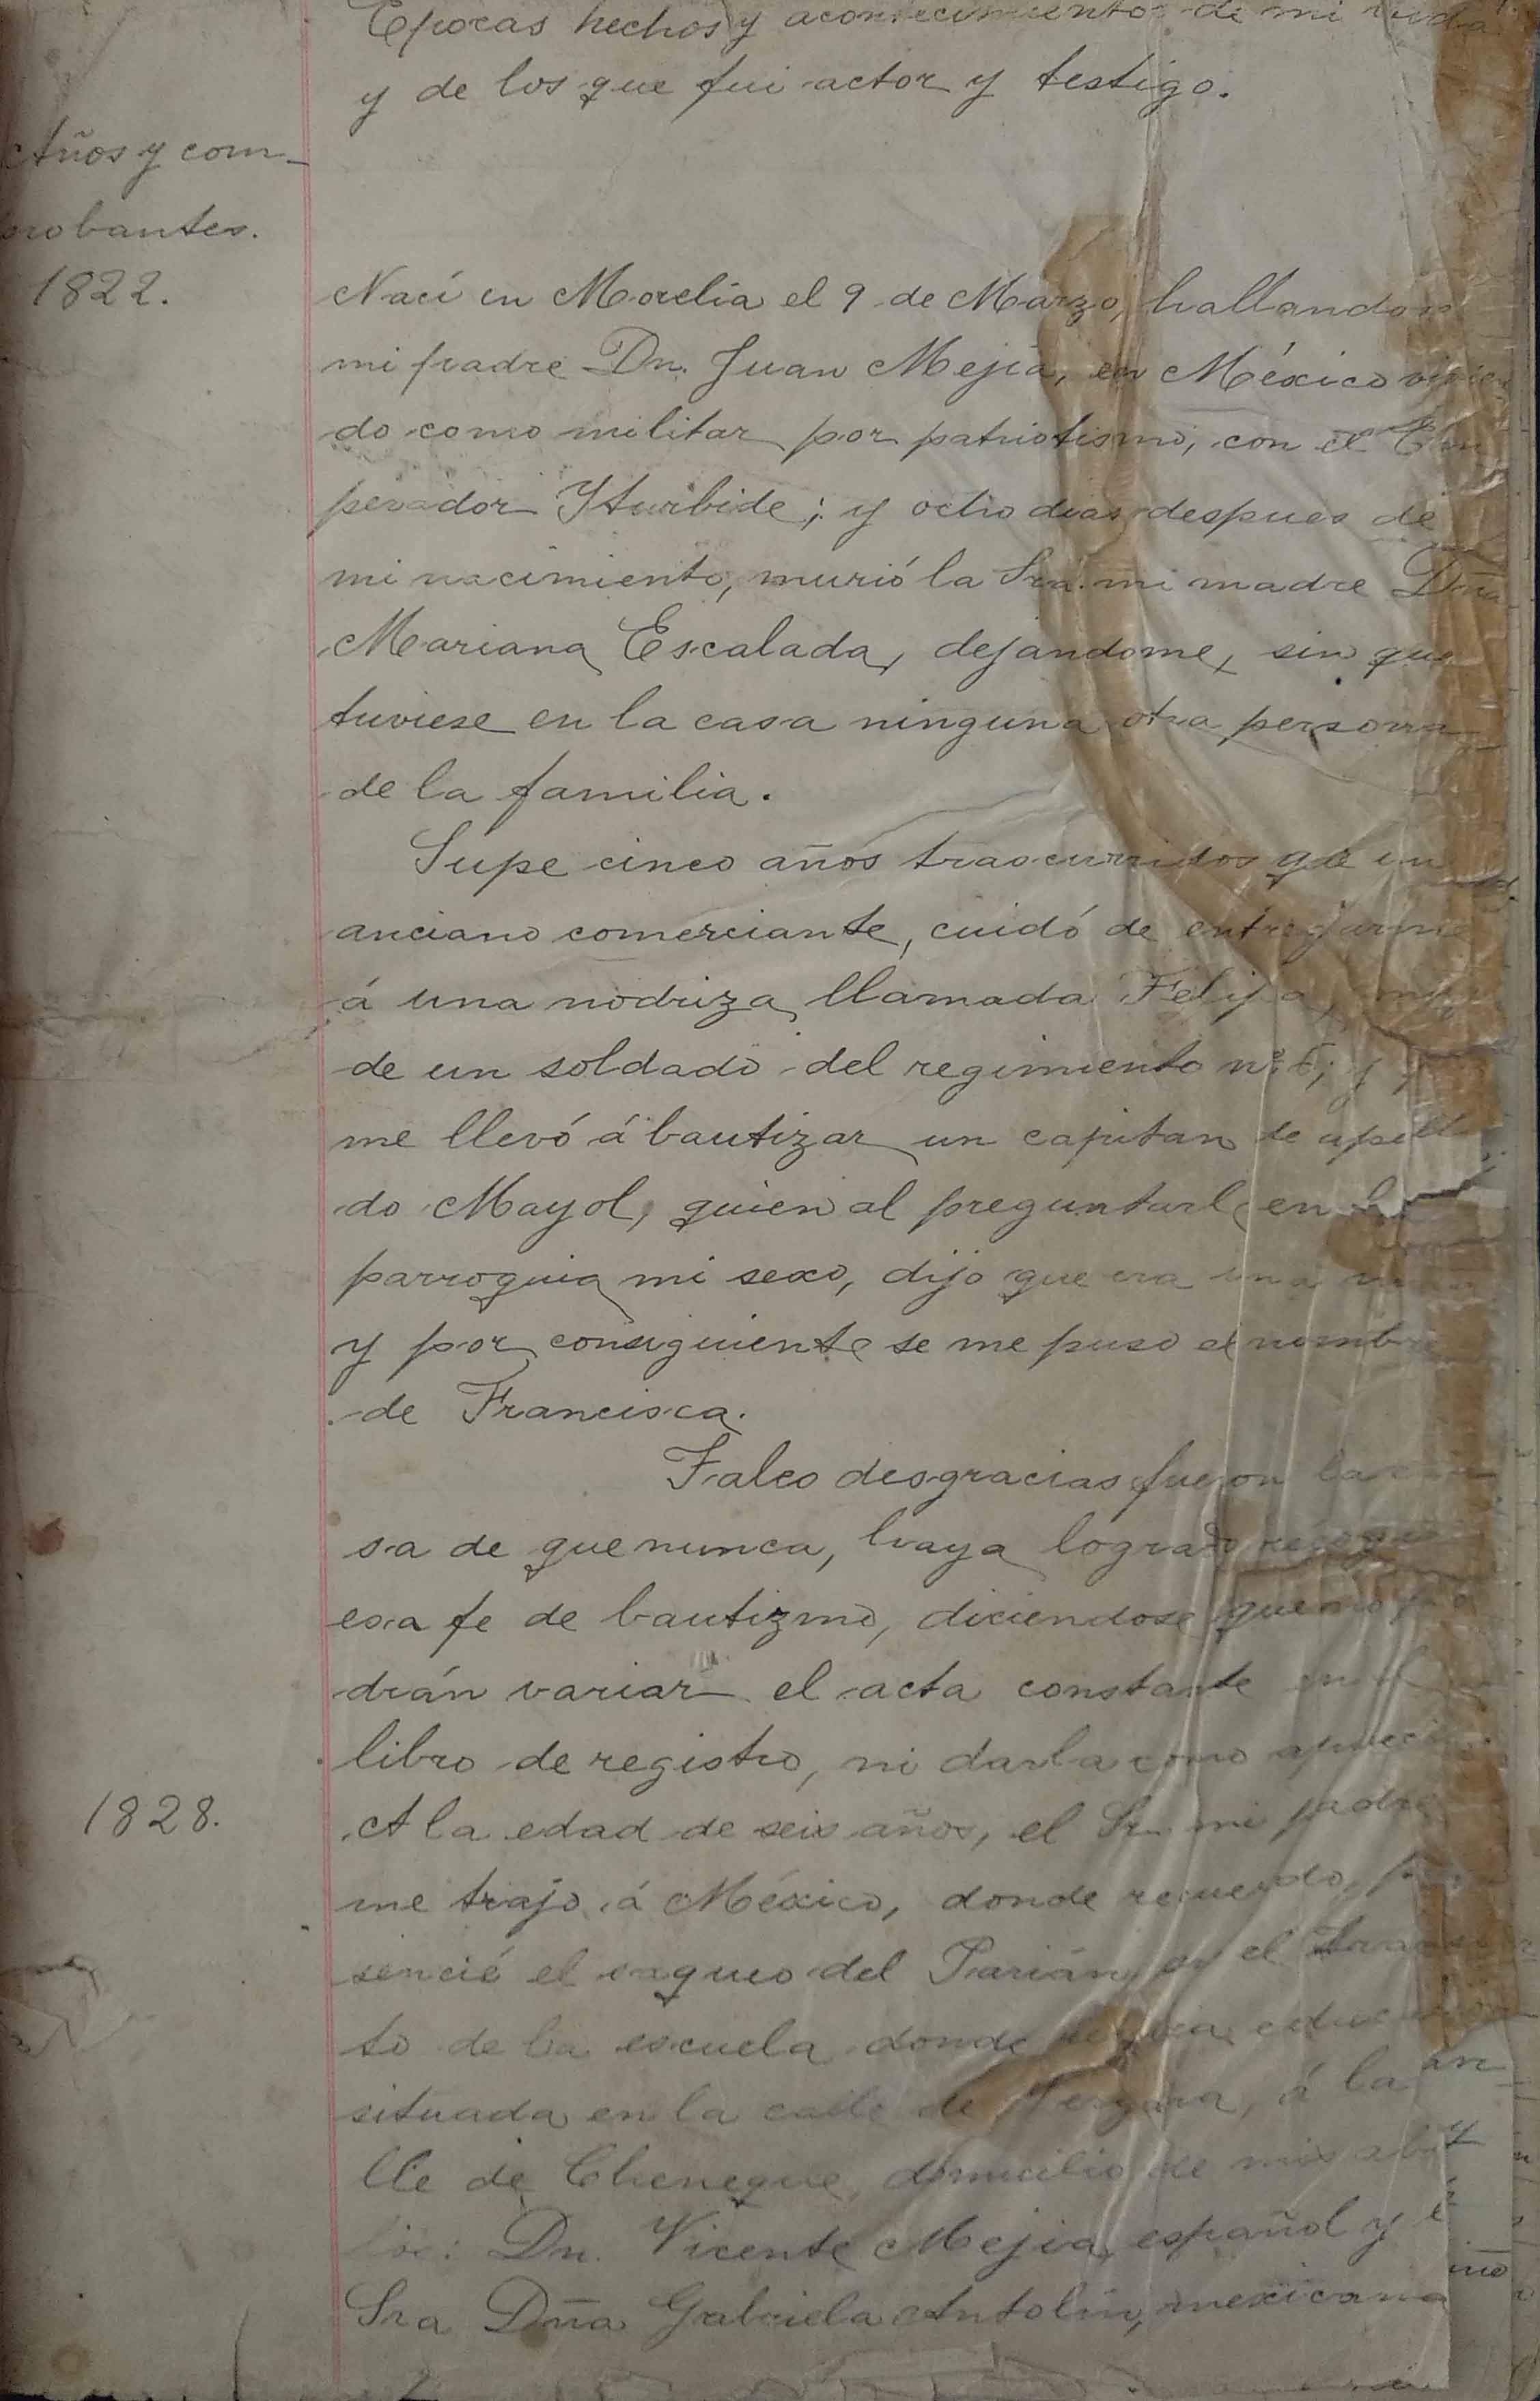 Epocas hechos y acontecimientos de mi vida
y de los que fui actor y testigo.
Años y com-
probantes.
1822.
Nací en Morelia el 9 de Marzo, hallandose
mi padre Dn. Juan Mejia, en México
do como militar por patriotismo, con el Em
perador Yturbide; y ocho dias despues de
mi nacimiento, murió la Sra. mi madre Dña
Mariana Escalada, dejandome, sin que
tuviese en la casa ninguna otra persona
de la familia.
Supe cinco años trascurridos que un
anciano comerciante, cuidó de entregarme
á una nodriza llamada Felipa,
de un soldado del regimiento nº 6; y
me llevó á bautizar un capitan de apelli
do Mayol, quien al preguntarle en la
parroquia mi sexo, dijo que era una
y por consiguiente se me puso el nombre
de Francisca.
Tales desgracias fueron la
sa de que nunca, haya logrado
esa fe de bautizmo, diciendose que no po
drán variar el acta constante en el
libro de registro, ni darla como aparece.
1828.
A la edad de seis años, el Sr. mi padre
me trajo á México, donde recuerdo, pre
sencié el saqueo del Parián, en el
to de la escuela donde
situada en la calle de Vergara, á la
lle de Cheneque, domicilio de mis abue
los: Dn. Vicente Mejia, español y
Sra Dña Gabriela Antolin, mexicana